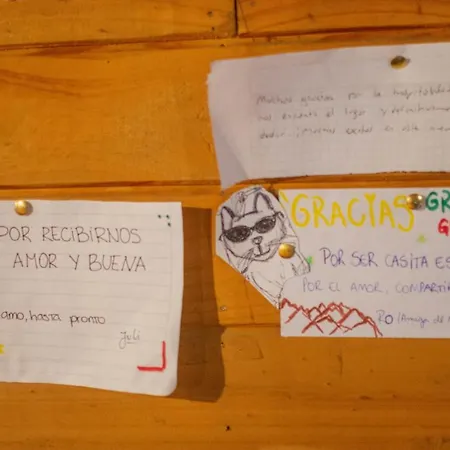 Muchas gracias por la hospitalidad
nos encantó el lugar y definitivamente
POR RECIBIRNOS
AMOR Y BUENA
amo, hasta pronto
Juli
GRACIAS
GR
G
POR SER CASITA ES
POR EL AMOR, COMPARTIR
RO (Amiga de